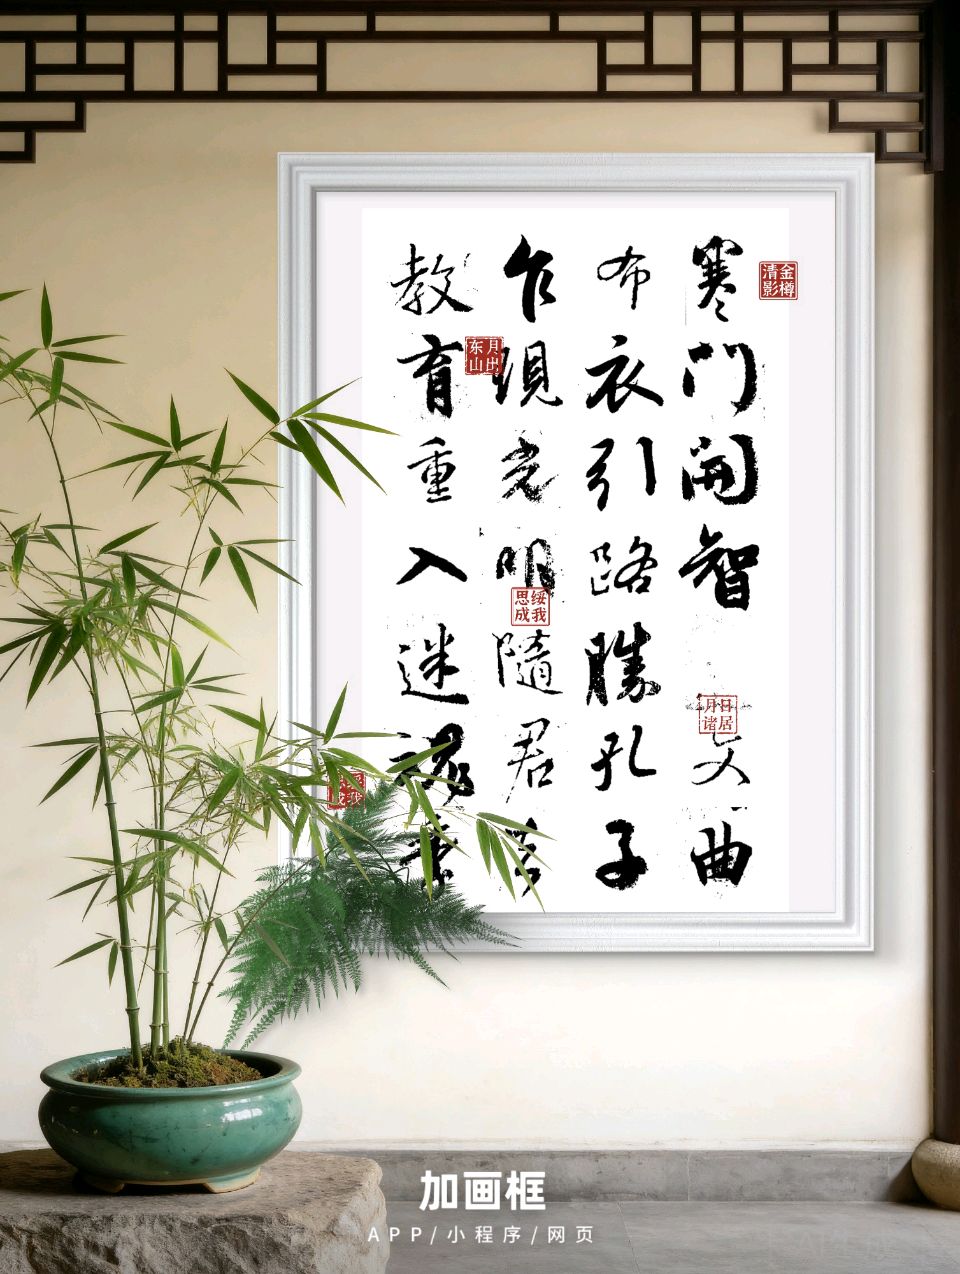 金樽
清影
寒门開智
文曲
日居
月诸
布衣引路勝孔子
乍現光明隨君
月出
东山
绥我
思成
教育重入迷
加画框
APP/小程序/网页